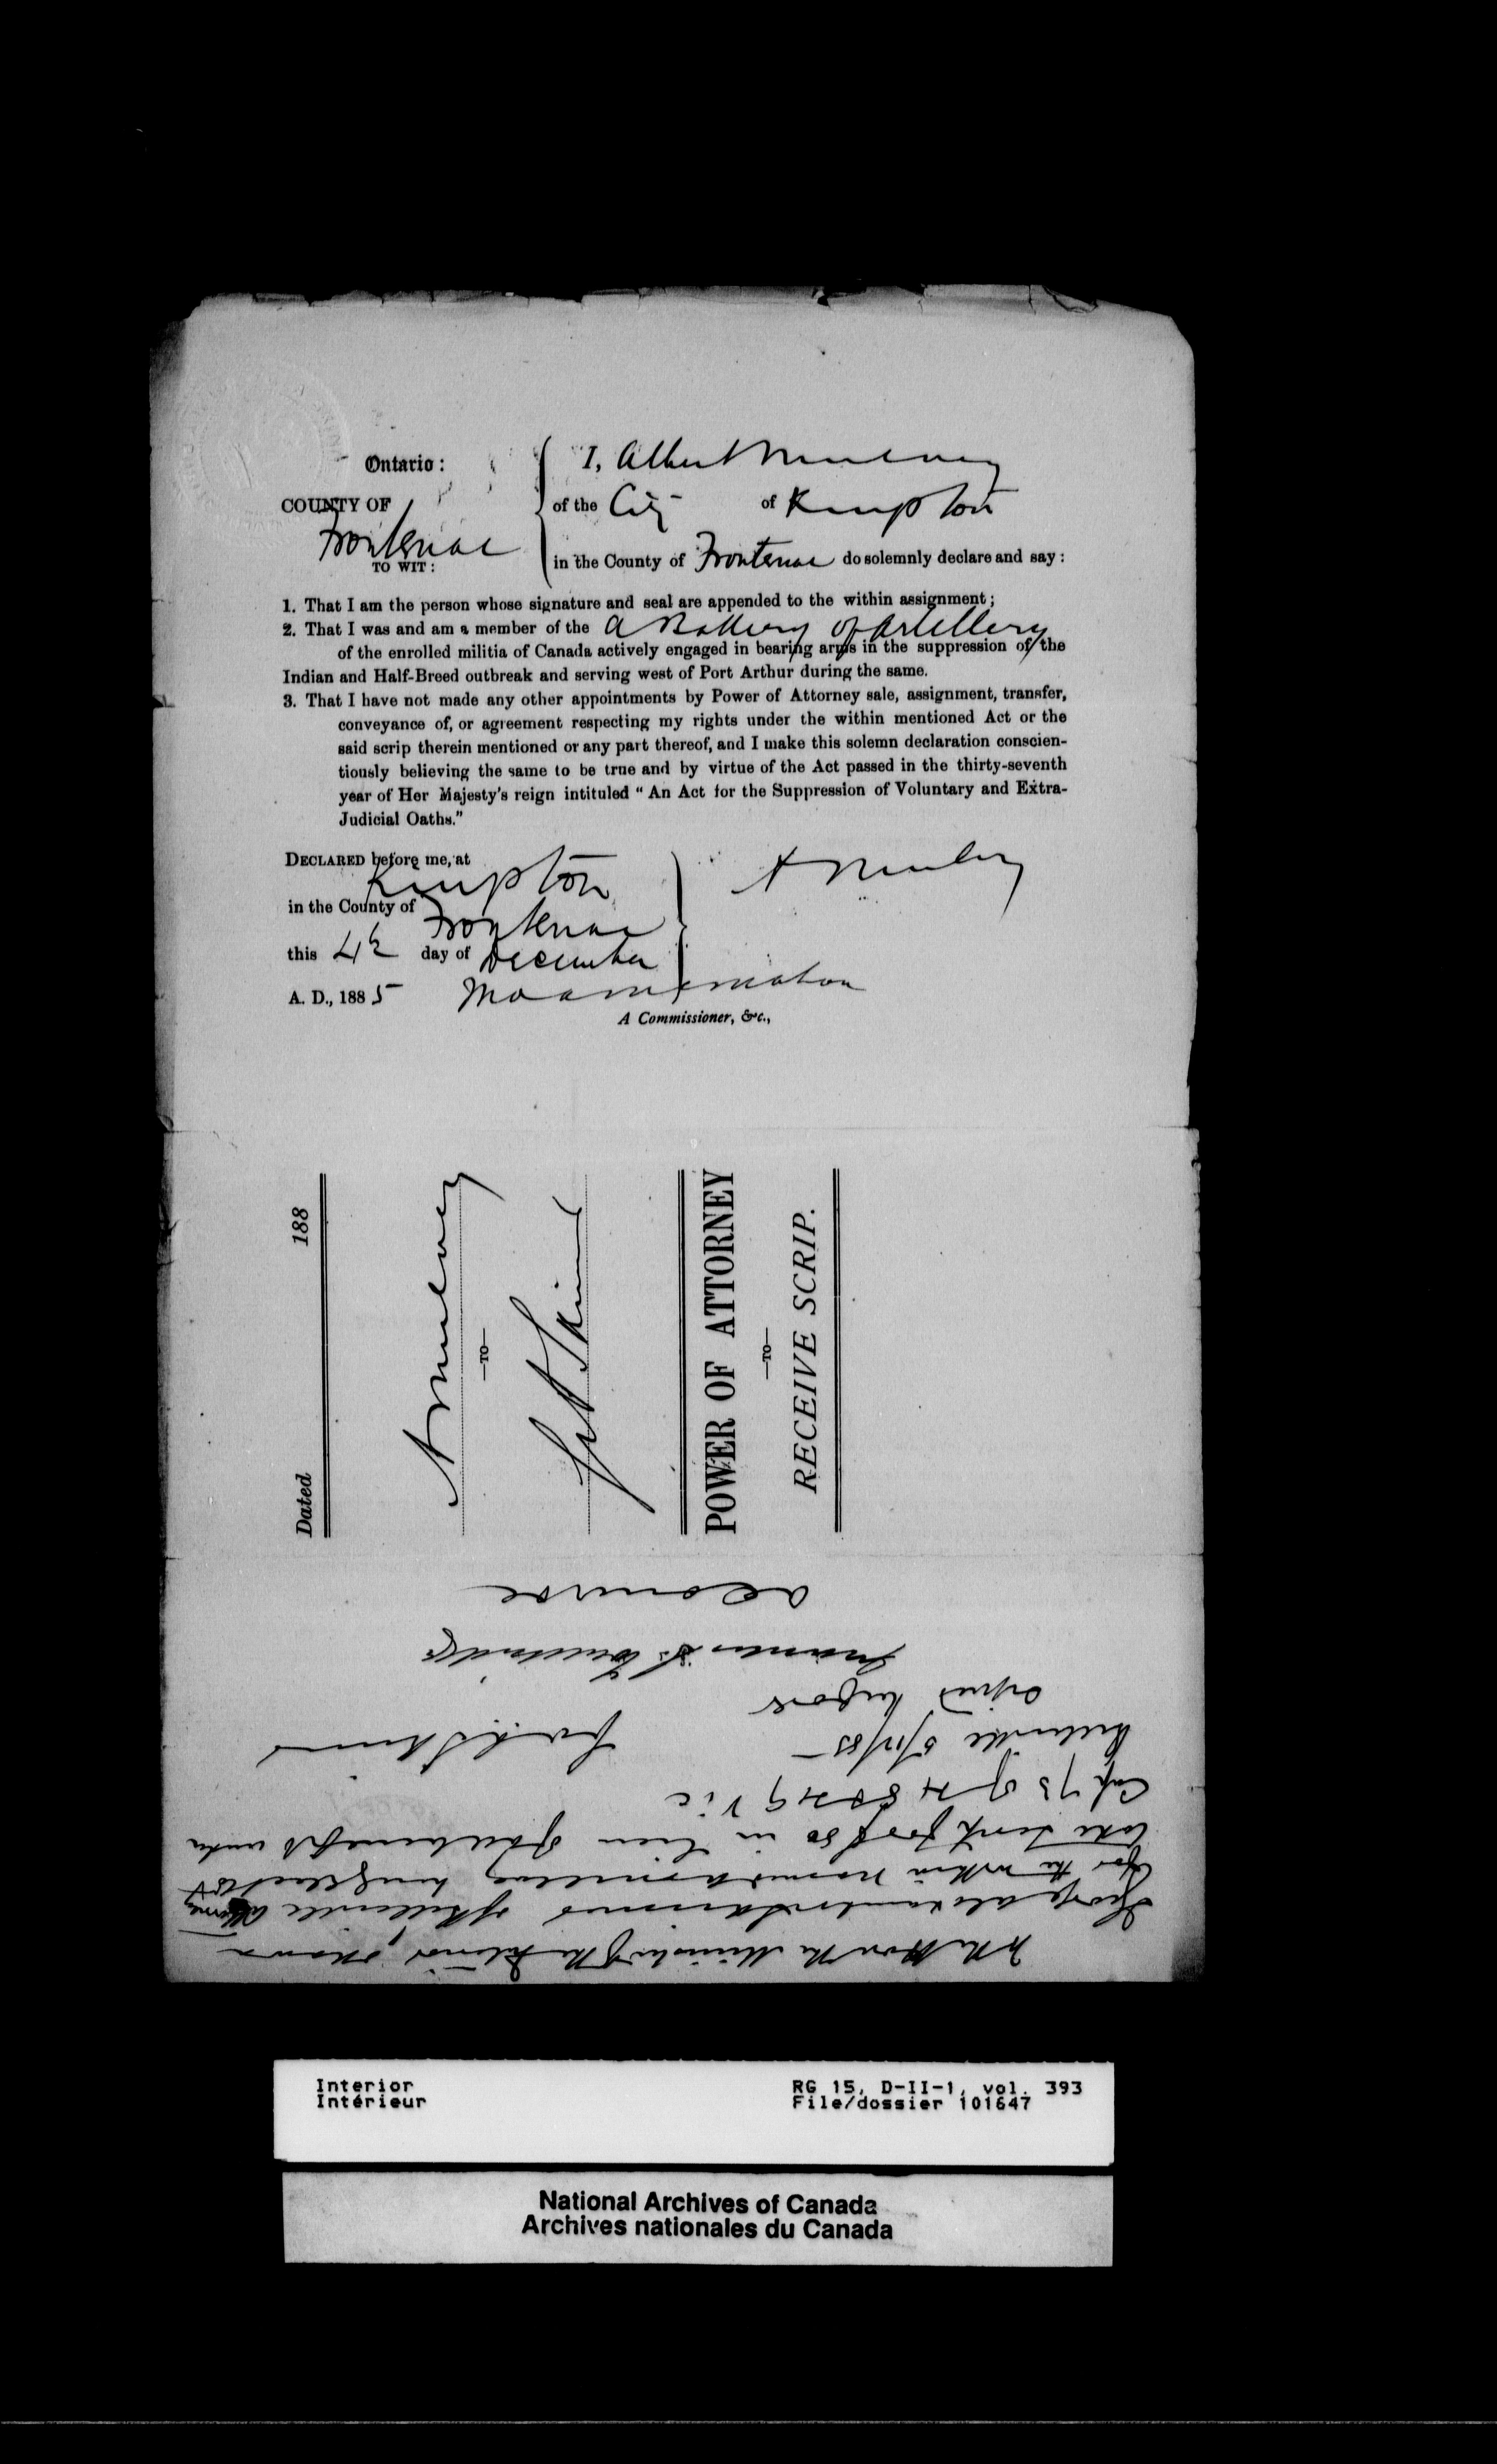 Ontario :
COUNTY OF
Frontenac
TO WIT :
I, Albert Mulvey
of the City of Kingston
in the County of Frontenac do solemnly declare and say :
1. That I am the person whose signature and seal are appended to the within assignment ;
2. That I was and am a member of the A Battery of Artillery
of the enrolled militia of Canada actively engaged in bearing arms in the suppression of the
Indian and Half-Breed outbreak and serving west of Port Arthur during the same.
3. That I have not made any other appointments by Power of Attorney sale, assignment, transfer,
conveyance of, or agreement respecting my rights under the within mentioned Act or the
said scrip therein mentioned or any part thereof, and I make this solemn declaration conscien-
tiously believing the same to be true and by virtue of the Act passed in the thirty-seventh
year of Her Majesty's reign intituled " An Act for the Suppression of Voluntary and Extra-
Judicial Oaths."
DECLARED before me, at
Kingston
in the County of
Frontenac
this 4th day of December
A. D., 1885
A Mulvey
A Commissioner, &c.,
Dated 188
A Mulvey
—TO—
G A Skinner
POWER OF ATTORNEY
—TO—
RECEIVE SCRIP.
To the Hon the Minister of the Interior, Ottawa
George Alexander Skinner of Belleville Attorney
for the within named A Mulvey hereby elect to
take scrip for $80 in lieu of
Cap 73 of 48 & 49 Vic
Belleville 5/12/85
Signed before
Geo A Skinner
Interior
Intérieur
RG 15, D-II-1, vol. 393
File/dossier 101647
National Archives of Canada
Archives nationales du Canada